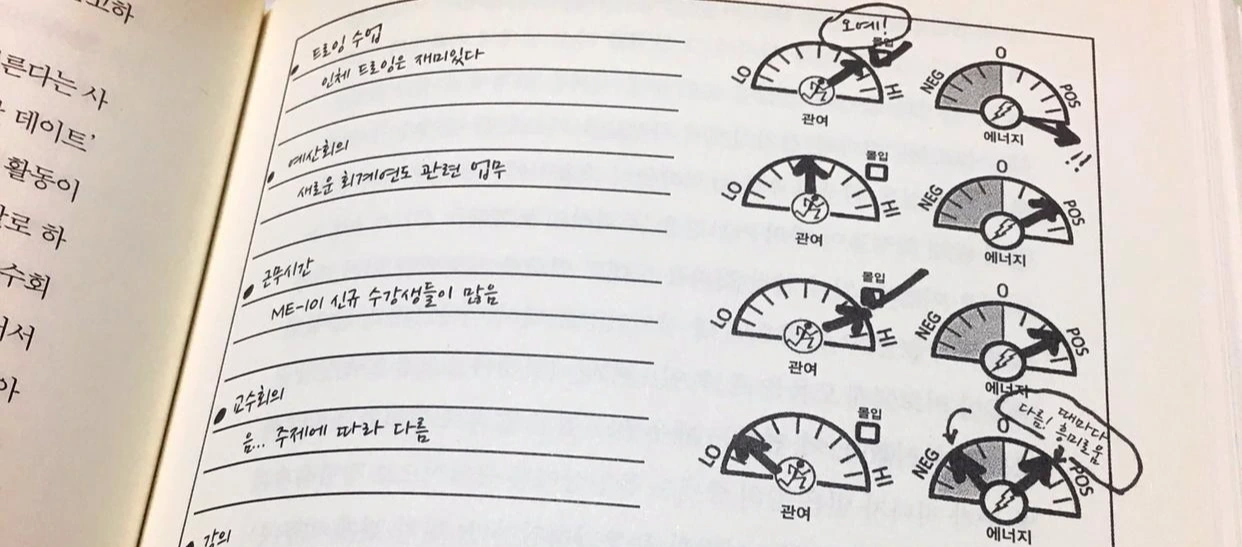 고하
른다는 사
데이트’
활동이
로 하
수회
서
아
드로잉 수업
인체 드로잉은 재미있다
오예!
몰입
LO
HI
관여
NEG
0
POS
에너지
!!
예산회의
새로운 회계연도 관련 업무
몰입
LO
HI
관여
NEG
0
POS
에너지
근무시간
ME-101 신규 수강생들이 많음
몰입
LO
HI
관여
NEG
0
POS
에너지
교수회의
음... 주제에 따라 다름
몰입
LO
HI
관여
때마다
다름! 흥미로움
NEG
0
POS
에너지
강의